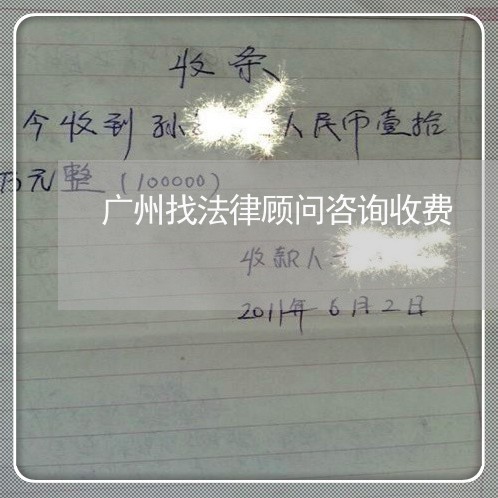 收条
今收到孙 人民币壹拾
万元整（100000）
广州找法律顾问咨询收费
收款人
2011年6月2日